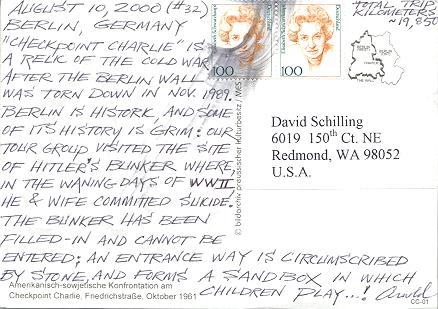 AUGUST 10, 2000 (#32)
BERLIN, GERMANY
"CHECKPOINT CHARLIE" IS
A RELIC OF THE COLD WAR
AFTER THE BERLIN WALL
WAS TORN DOWN IN NOV. 1989.
BERLIN IS HISTORIC, AND SOME
OF ITS HISTORY IS GRIM: OUR
TOUR GROUP VISITED THE SITE
OF HITLER'S BUNKER WHERE,
IN THE WANING DAYS OF WWII,
HE & WIFE COMMITTED SUICIDE.
THE BUNKER HAS BEEN
FILLED-IN AND CANNOT BE
ENTERED; AN ENTRANCE WAY IS CIRCUMSCRIBED
BY STONE, AND FORMS A SANDBOX IN WHICH
CHILDREN PLAY...! Arnold
Amerikanisch-sowjetische Konfrontation am
Checkpoint Charlie, Friedrichstraße, Oktober 1961
CC-01
© bildarchiv preussischer kulturbesitz / MES
100
100
TOTAL TRIP
KILOMETERS
~19,850
BERLIN
THE WALL
David Schilling
6019 150th Ct. NE
Redmond, WA 98052
U.S.A.